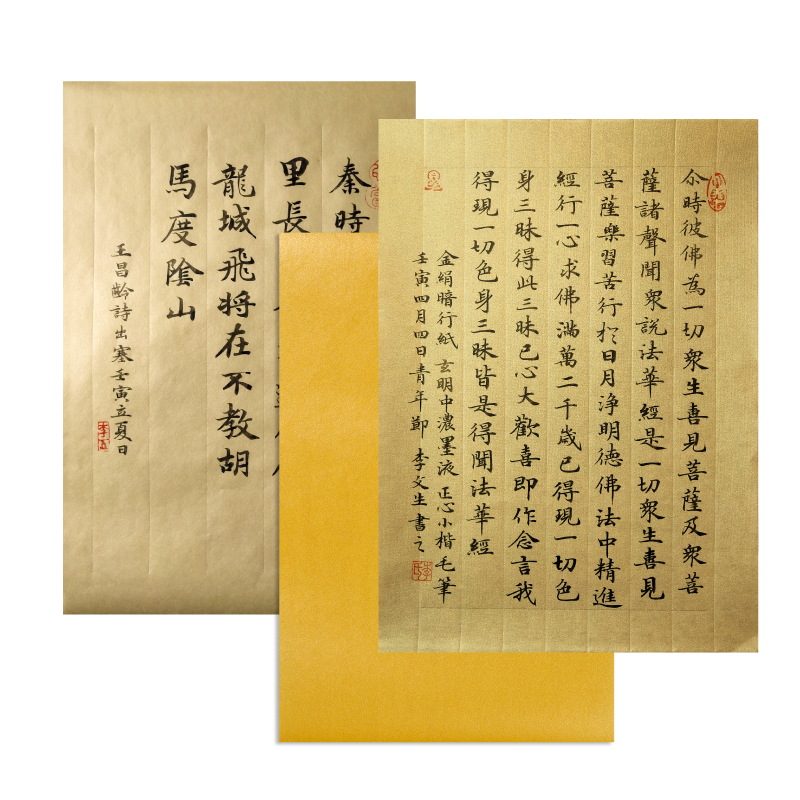 秦時
里長
龍城飛将在不教胡
馬度陰山
王昌齡詩出塞壬寅立夏日
尒時彼佛為一切衆生喜見菩薩及衆菩
薩諸聲聞衆説法華經是一切衆生喜見
菩薩樂習苦行於日月淨明德佛法中精進
經行一心求佛滿萬二千歲已得現一切色
身三昧得此三昧已心大歡喜即作念言我
得現一切色身三昧皆是得聞法華經
金絹暗行紙 玄明中濃墨液 正心小楷毛筆
壬寅四月四日青年節 李文生書之